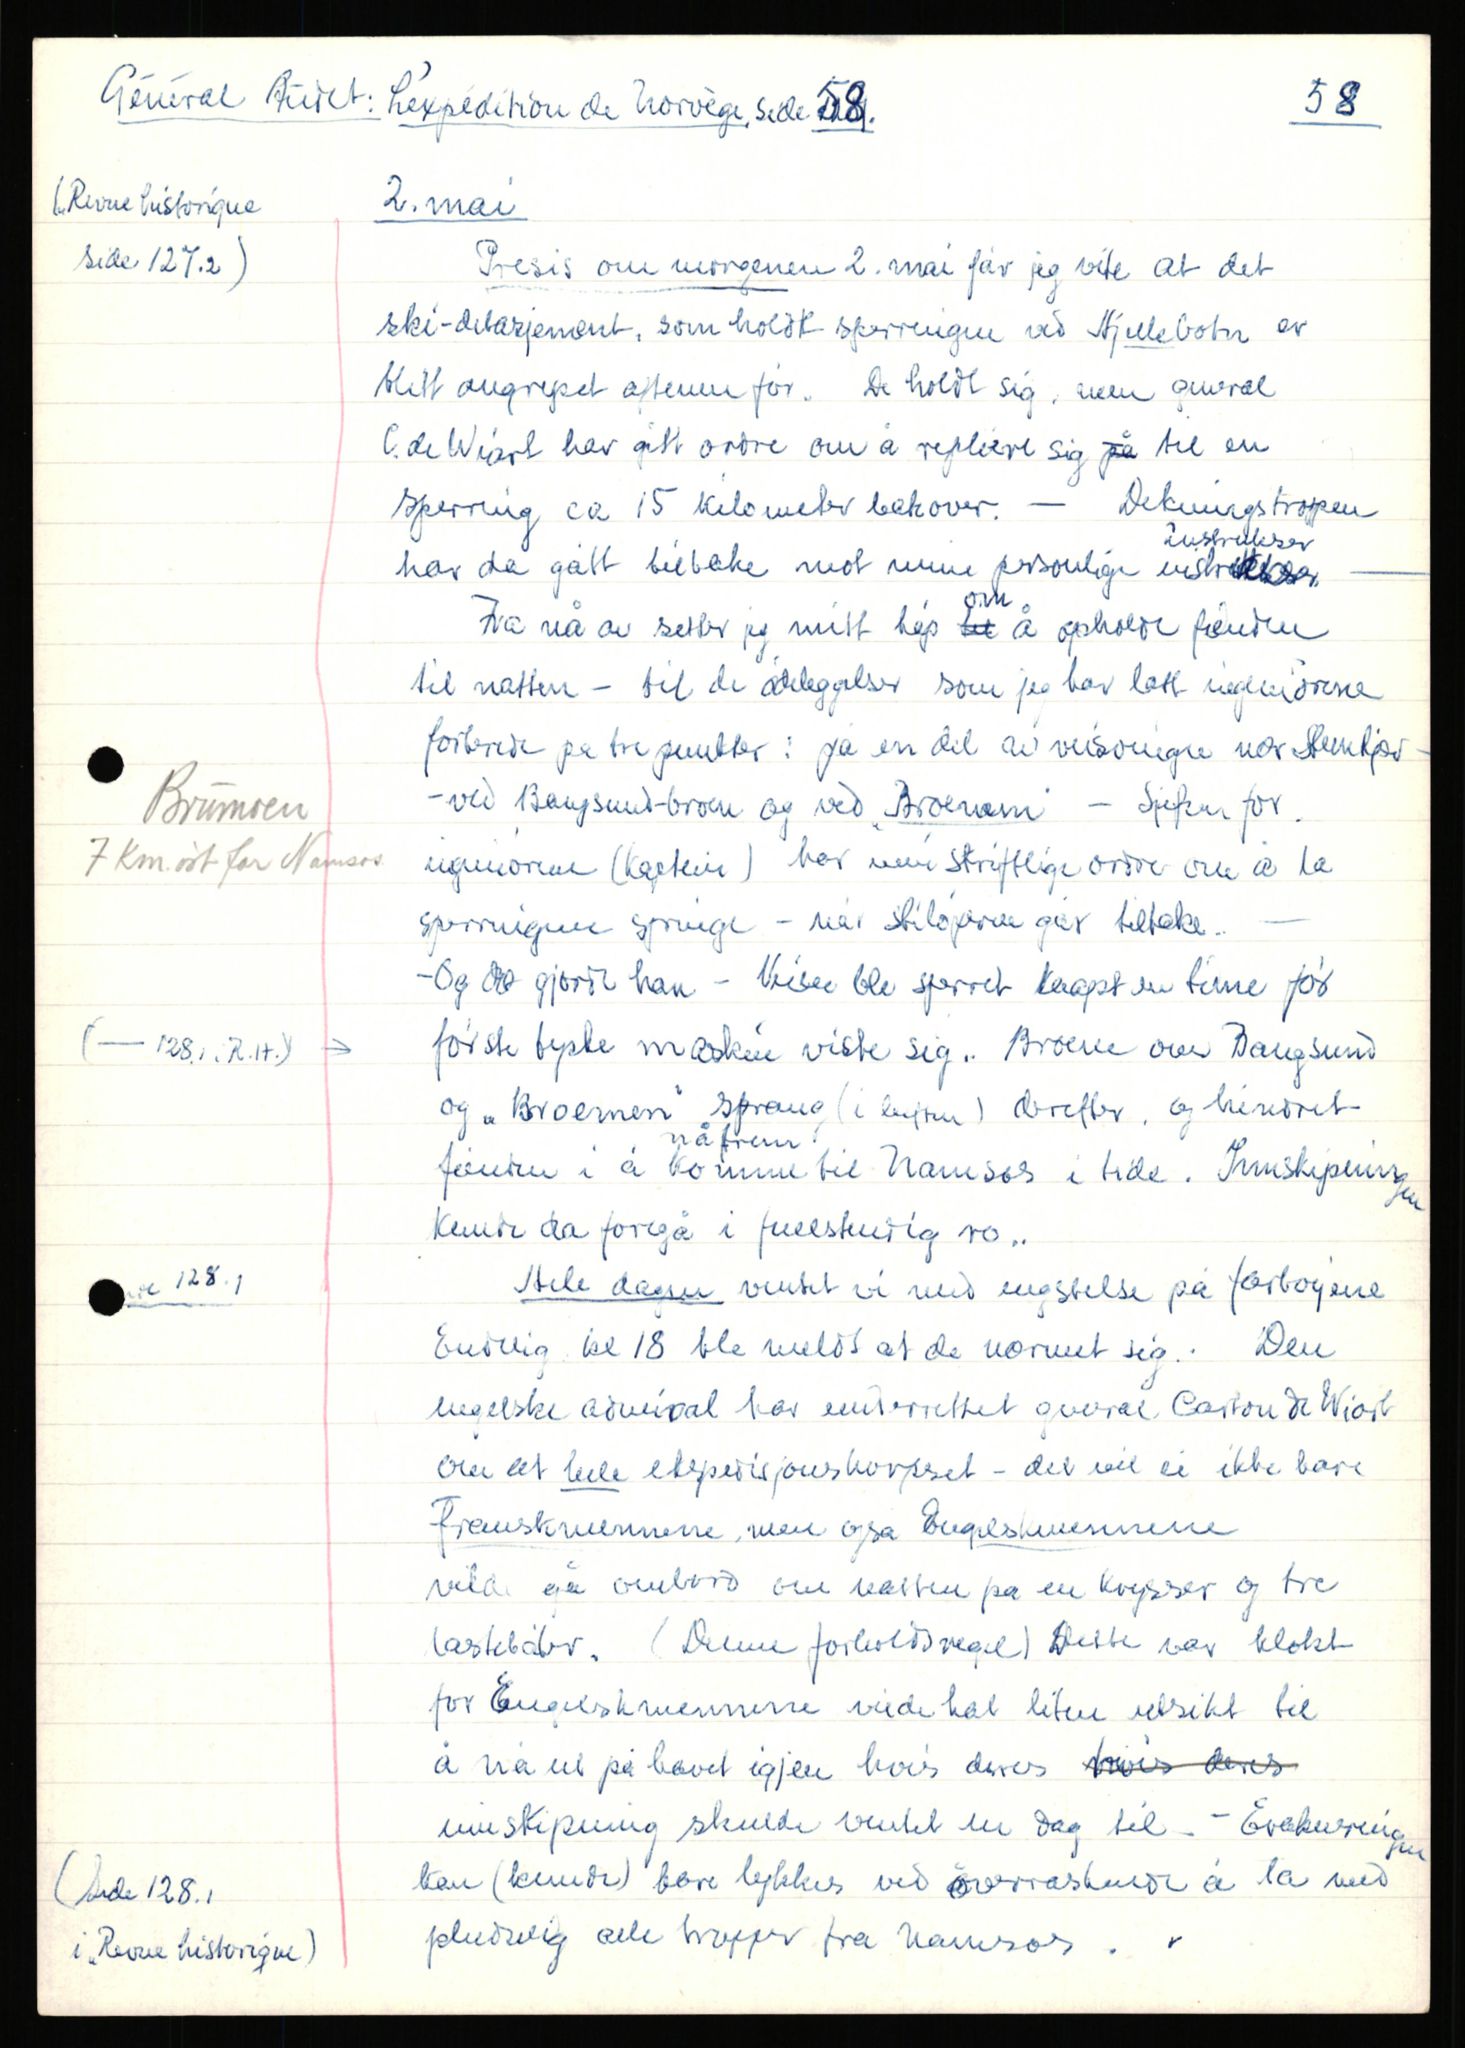 Général Audet: L'expédition de Norvège, side 58.
58
(Revue historique
side 127.2)
2. mai
Presis om morgenen 2. mai får jeg vite at det
ski-detasjement, som holdt sperringen ved Hjellebotn er
blitt angrepet aftenen før. De holdt sig, men general
C. de Wiart har gitt ordre om å replière sig på til en
sperring ca 15 kilometer bakover. — Dekningstroppen
har da gått tilbake mot mine personlige instrukser —
Fra nå av setter jeg mitt håp om å opholde fienden
til natten - til de ødeleggelser som jeg har latt ingeniørene
forberede på tre punkter: på en del av veisvingen nær Steinkjær -
- ved Bangsund-broen og ved "Broemem" - Sjefen for
Brumoen
7 Km. øst for Namsos
ingeniørene (kaptein) har min skriftlige ordre om å la
sperringene springe - når skiløperne går tilbake. —
- Og det gjorde han - Veien ble sperret knapt en time før
(— 128.1. R.H.) →
første tyske maskin viste sig.. Broene over Bangsund
og "Broemen" sprang (i luften) derefter, og hindret
fienden i å nå frem komme til Namsos i tide. Innskipningen
kunde da foregå i fullstendig ro..
128.1
Hele dagen ventet vi med engstelse på fartøyene
Endelig kl 18 ble meldt at de nærmet sig.. Den
engelske admiral har underrettet general Carton de Wiart
om at hele ekspedisjonskorpset - det vil si ikke bare
Franskmennene, men også Engelskmennene
vilde gå ombord om natten på en krysser og tre
lastebåter. (Denne forholdsregel) Dette var klokt
for Engelskmennene vilde hat liten utsikt til
å nå ut på havet igjen hvis deres hvis deres
innskipning skulde ventet en dag til - - Evakueringen
kan (kunde) bare lykkes ved overraskende å ta med
(Side 128.1
i "Revue historique)
pludselig alle tropper fra Namsos.